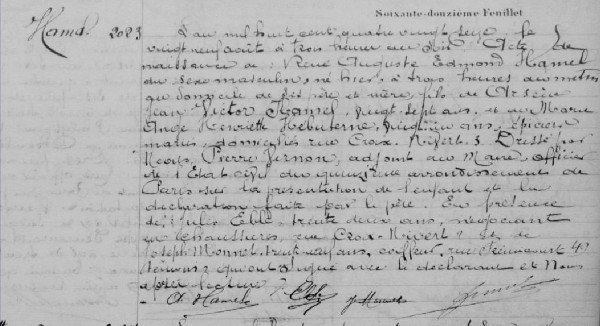 Soixante-douzième Feuillet
Hamel 2023 L'an mil huit cent quatre vingt seize, le
vingt neuf août à trois heures du soir. Acte de
naissance de René Auguste Edmond Hamel
du sexe masculin, né hier, à trois heures du matin
au domicile de ses père et mère, fils de Arsène
Jean Victor Hamel, vingt sept ans, et de Marie
Ange Henriette Hébuterne, ans, épiciers
mariés, domiciliés rue Croix-Nivert 3. Dressé par
Nous, Pierre Vernon, adjoint au Maire, officier
de l'Etat civil du quinzième arrondissement de
Paris sur la présentation de l'enfant et la
déclaration faite par le père. En présence
de Jules trente deux ans, négociant
en chaussures, rue Croix-Nivert 2 et de
Joseph ans, coiffeur, rue
témoins qui ont signé avec le déclarant et Nous
après lecture
A Hamel